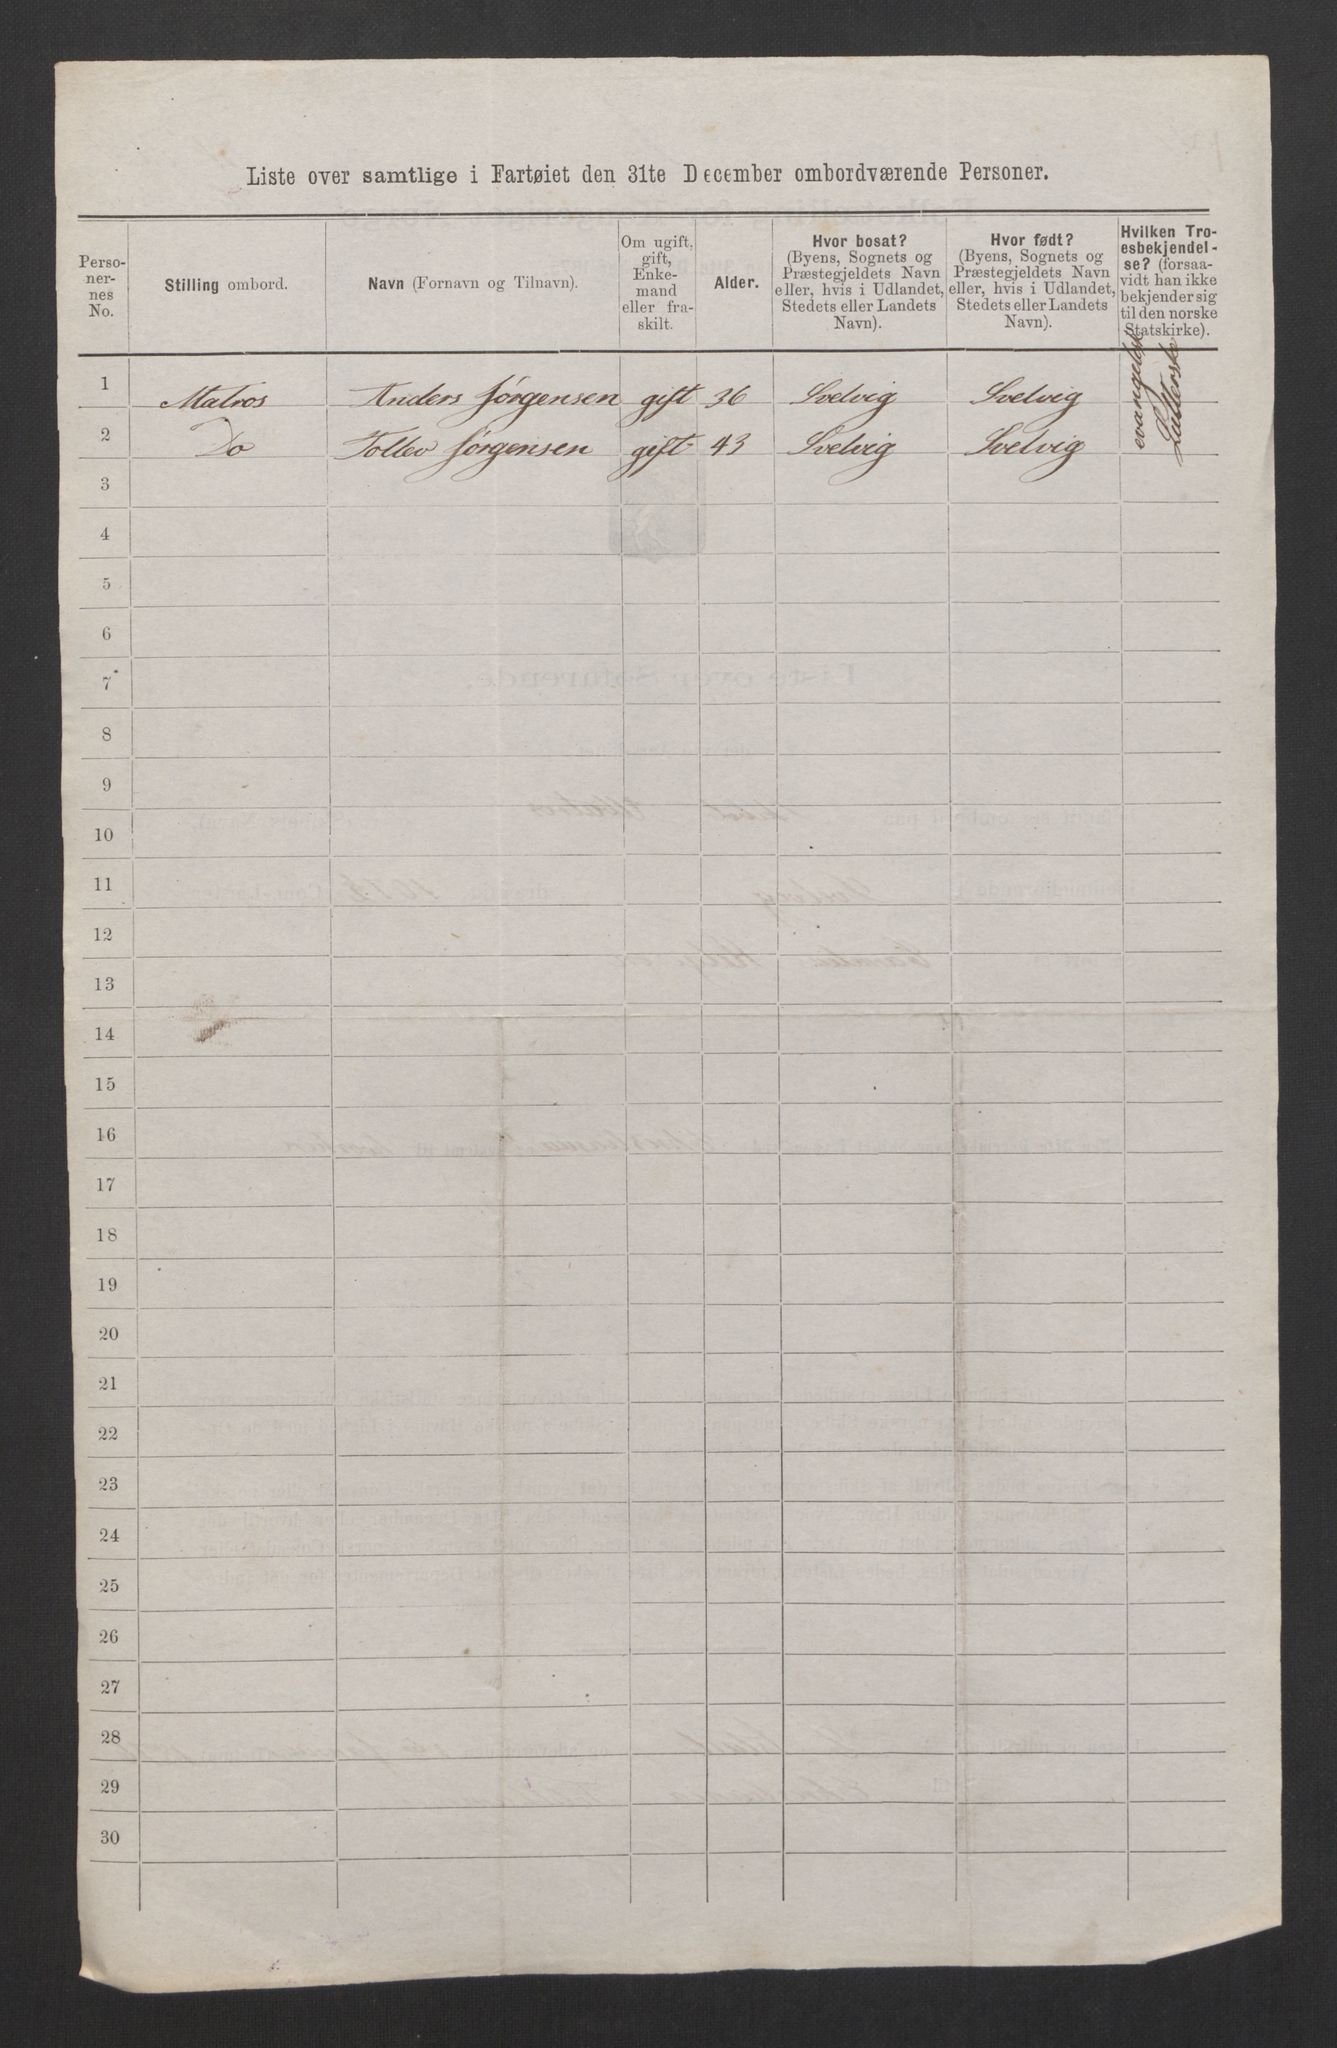 Liste over samtlige i Fartøiet den 31te December ombordværende Personer.
Perso-
ner-
nes
No.
Stilling ombord.
Navn (Fornavn og Tilnavn).
Om ugift,
gift,
Enke-
mand
eller fra-
skilt.
Alder.
Hvor bosat?
(Byens, Sognets og
Præstegjeldets Navn
eller, hvis i Udlandet,
Stedets eller Landets
Navn).
Hvor født?
(Byens, Sognets og
Præstegjeldets Navn
eller, hvis i Udlandet,
Stedets eller Landets
Navn).
Hvilken Tro-
esbekjendel-
se? (forsaa-
vidt han ikke
bekjender sig
til den norske
Statskirke).
1 Matros Anders Jørgensen gift 36 Svelvig Svelvig
2 Do Tollev Jørgensen gift 43 Svelvig Svelvig
evangelisk
Lutterske
3
4
5
6
7
8
9
10
11
12
13
14
15
16
17
18
19
20
21
22
23
24
25
26
27
28
29
30